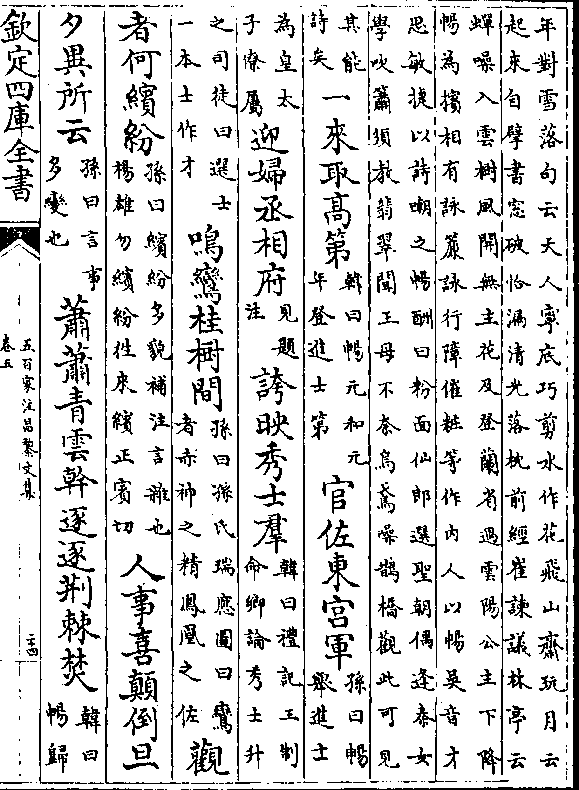 年對雪落句云天人寧底巧剪水作花飛山齋玩月云
起來自擘書窓破恰漏清光落枕前經崔諫議林亭云
蟬噪入雲樹風開無主花及登蘭省遇雲陽公主下降
暢為擯相有詠簾詠行障催粧等作内人以暢吳音才
思敏捷以詩嘲之暢酬曰粉面仙郎選聖朝偶逢秦女
學吹簫須教翡翠聞王母不奈烏鳶噪鵲橋觀此可見
其能詩矣一來取高第韓曰暢元和元年登進士第官佐東宫軍孫曰暢舉進士
為皇太子僚屬迎婦丞相府見題注誇映秀士羣韓曰禮記王制命鄉論秀士升
之司徒曰選士一本士作才鳴鸞桂樹間孫曰孫氏瑞應圖曰鸞者赤神之精鳳凰之佐觀
者何繽紛孫曰繽紛多貌補注言雜也揚雄勿繽紛徃來繽正賔切人事喜顛倒旦
夕異所云孫曰言事多變也蕭蕭青雲幹遂逐荆棘焚韓曰暢歸
欽定四庫全書
五百家注昌黎文集
卷五
二十四